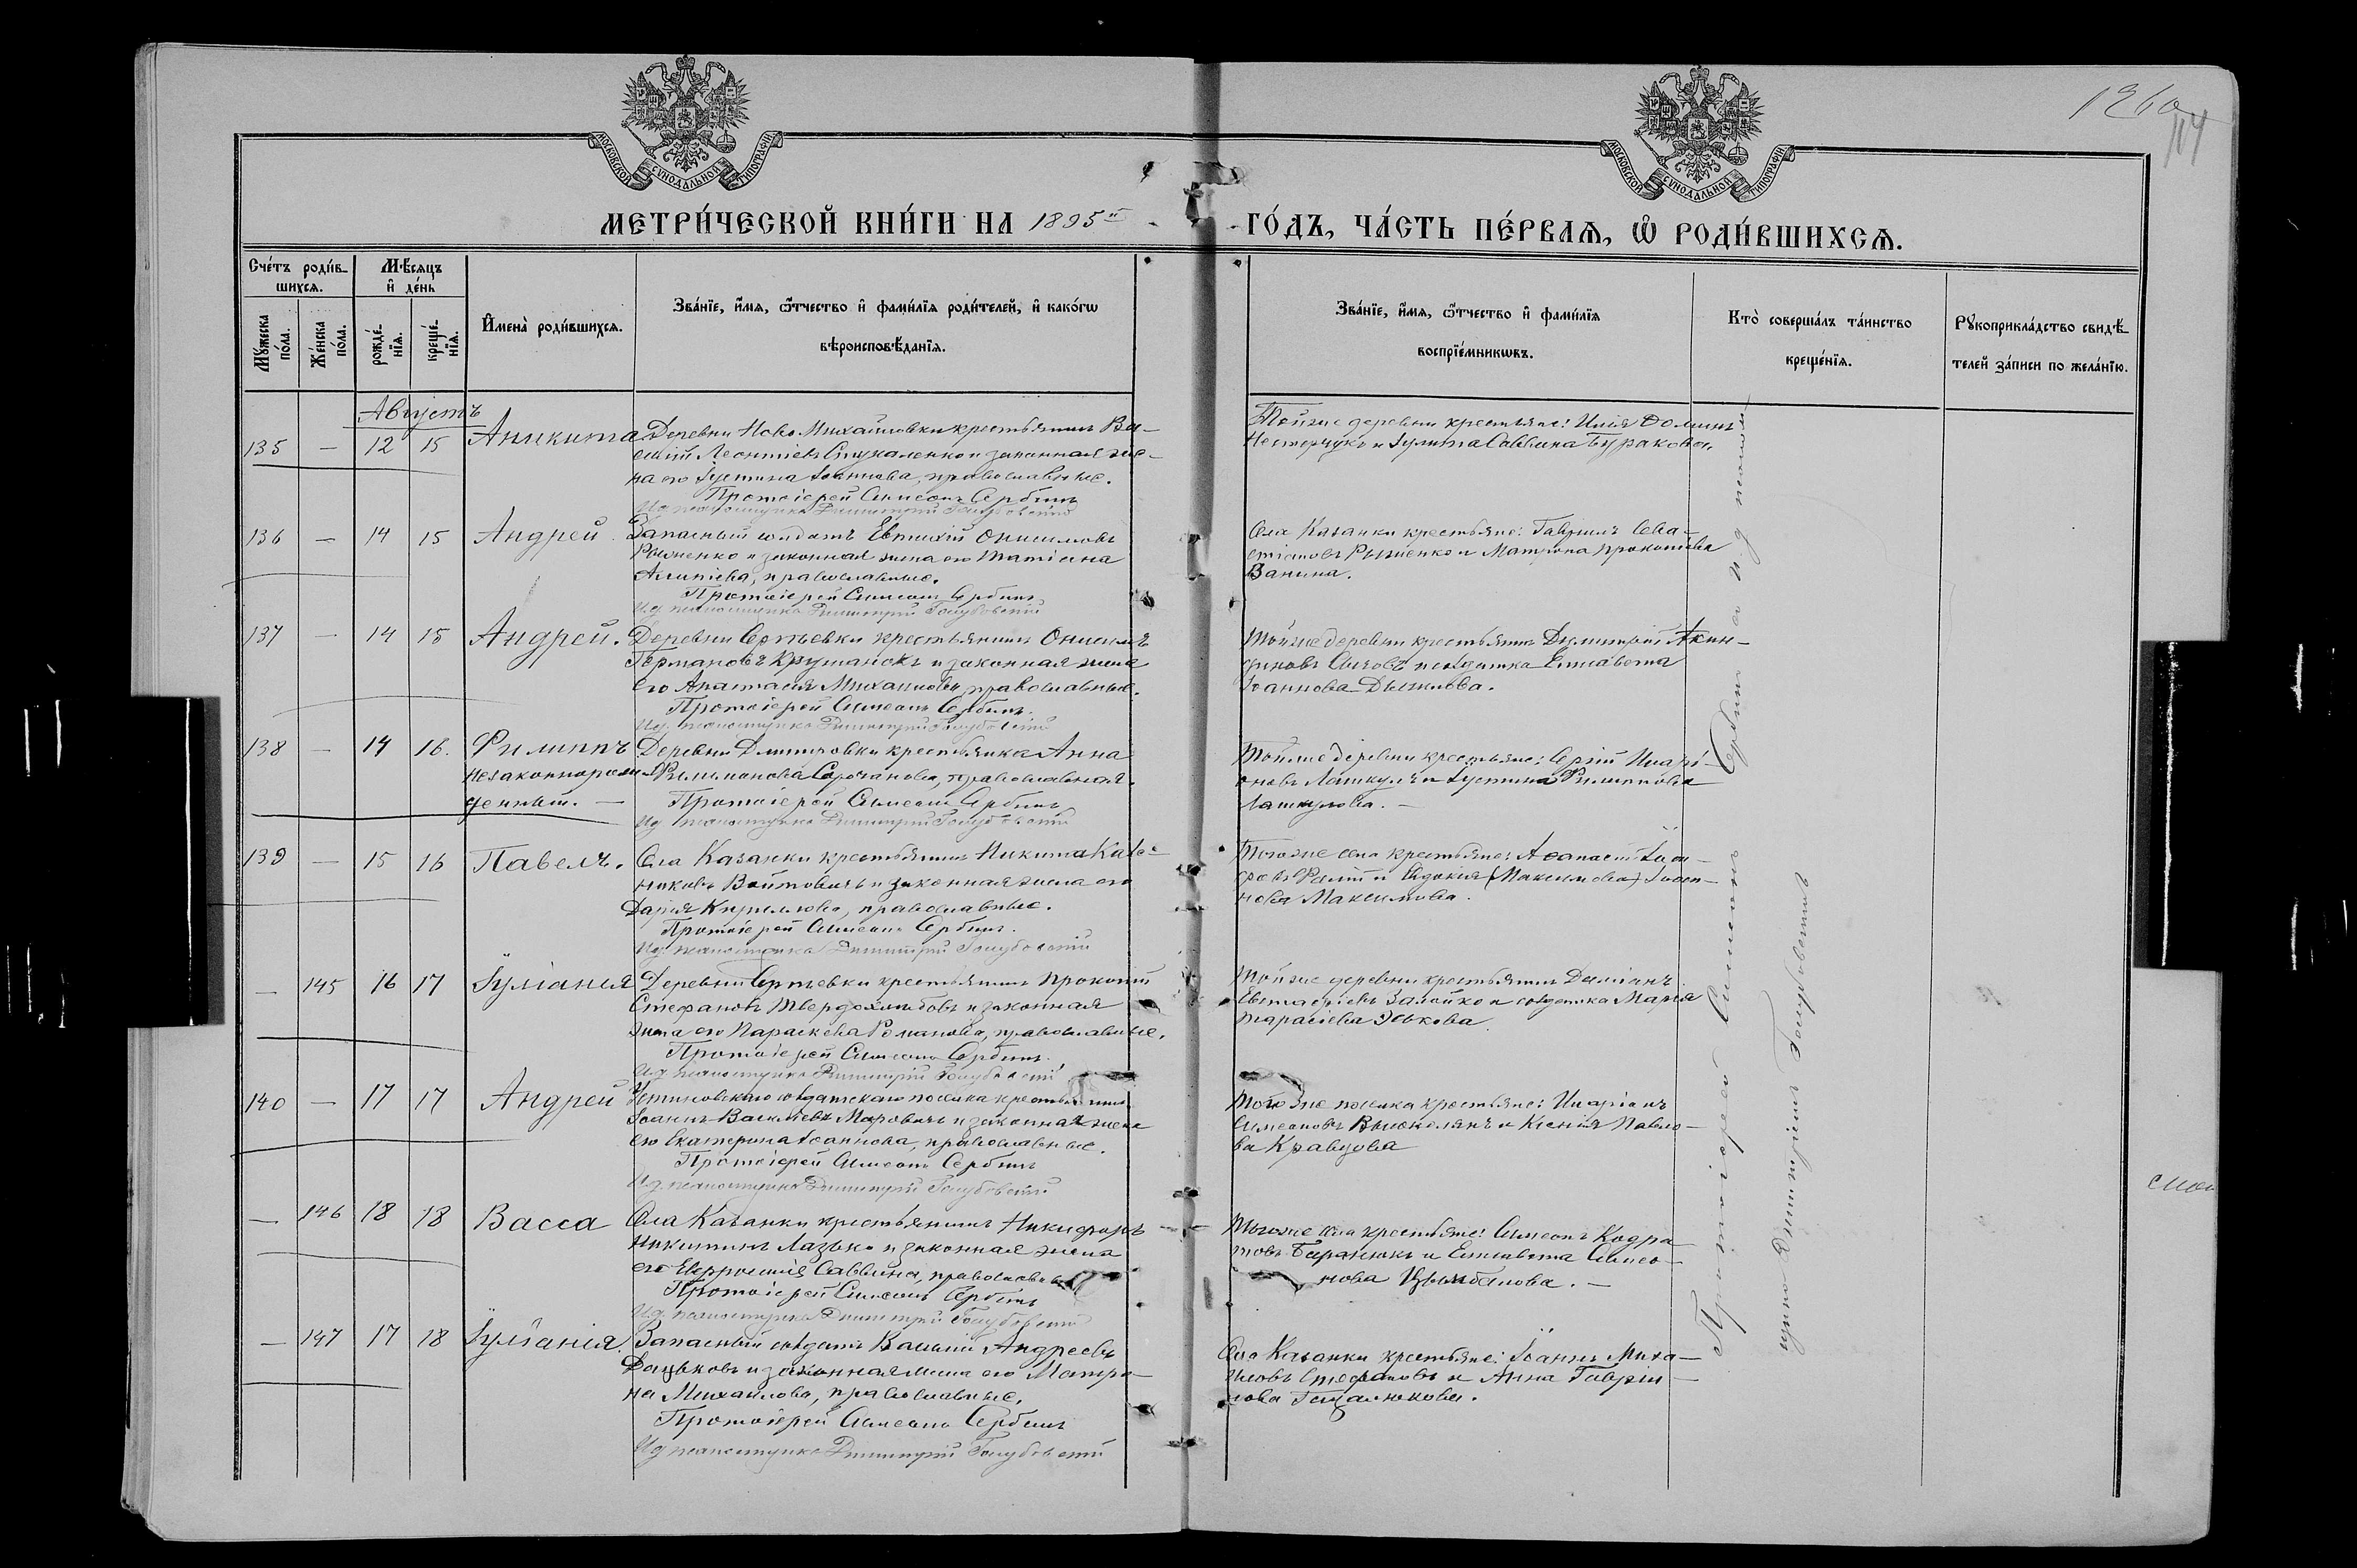 126
114
МОСКОВСКОЙ СУНОДАЛЬНОЙ ТИПОГРАФІИ
МОСКОВСКОЙ СУНОДАЛЬНОЙ ТИПОГРАФІИ
МЕТРИ́ЧЕСКОЙ КНИ́ГИ НА 1895
ГО́ДЪ, ЧА́СТЬ ПЕ́РВАѦ, Ѡ҆ РОДИ́ВШИХСѦ.
Сче́тъ роди́в-
шихсѧ.
Мꙋ́жеска по́ла.
Же́нска по́ла.
Мѣ́сѧцъ
и҆ де́нь
рожде́-
нїѧ.
креще́-
нїѧ.
И҆мена̀ роди́вшихсѧ.
Зва́нїе, и҆́мѧ, ѻ҆́тчество и҆ фами́лїѧ роди́телей, и҆ како́гѡ
вѣроисповѣ́данїѧ.
Зва́нїе, и҆́мѧ, ѻ҆́тчество и҆ фами́лїѧ
воспрїе́мникѡвъ.
Кто̀ соверша́лъ та́инство
креще́нїѧ.
Рꙋкоприкла́дство свидѣ́-
телей за́писи по жела́нїю.
Августъ
135 — 12 15 Аникита
Деревни Ново Михайловки крестьянинъ Ва-
силій Леонтіевъ Стукаленко и законная же-
на его Іустина Іоаннова, православные.
Протоіерей Симеонъ Сербинъ
И.д. псаломщика Димитрій Голубовскій
Тойже деревни крестьяне: Илія
Нестерчукъ и Іулита Саввина Буракова.
136 — 14 15 Андрей
Запасный солдатъ Евтихій Онисимовъ
Рыженко и законная жена его Татіана
Алипіева, православные.
Протоіерей Симеонъ Сербинъ
И.д. псаломщика Димитрій Голубовскій
Села Казанки крестьяне: Гавріилъ Сева-
стіановъ Рыженко и Матрона Прокопіева
Ванина.
137 — 14 15 Андрей.
Деревни Сергѣевки крестьянинъ Онисимъ
Германовъ Крутанокъ и законная жена
его Анастасія Михаилова, православные.
Протоіерей Симеонъ Сербинъ.
И.д. псаломщика Димитрій Голубовскій
Тойже деревни крестьянинъ Димитрій Акин-
финовъ и солдатка Елисавета
Іоаннова
138 — 14 16. Филиппъ
незаконнорож-
денный. —
Деревни Дмитровки крестьянка Анна
Филимонова православная.
Протоіерей Симеонъ Сербинъ
И.д. псаломщика Димитрій Голубовскій
Тойже деревни крестьяне: Сергій Иларі-
оновъ Лашкулъ и Іустина Филиппова
Лашкулова. —
139 — 15 16 Павелъ.
Села Казанки крестьянинъ Никита
Войтовичъ и законная жена его
Дарія Кириллова, православные.
Протоіерей Симеонъ Сербинъ.
И.д. псаломщика Димитрій Голубовскій
Тогоже села крестьяне: Аѳанасій
и Евдокія (Максимова)
нова Максимова.
— 145 16 17 Іуліанія
Деревни Сергѣевки крестьянинъ Прокопій
Стефановъ Твердохлѣбовъ и законная
жена его Параскева Романова, православные.
Протоіерей Симеонъ Сербинъ.
И.д. псаломщика Димитрій Голубовскій
Тойже деревни крестьянинъ Даміанъ
Евстафіевъ и солдатка Марія
Тарасіева
140 — 17 17 Андрей
Устиновскаго солдатскаго поселка крестьянинъ
Іоаннъ Васильевъ Маровичъ и законная жена
его Екатерина Іоаннова, православные.
Протоіерей Симеонъ Сербинъ
И.д. псаломщика Димитрій Голубовскій
Тогоже поселка крестьяне: Иларіонъ
Симеоновъ и Ксенія Павло-
ва Кравцова
— 146 18 18 Васса
Села Казанки крестьянинъ Никифоръ
Никитинъ Лазько и законная жена
его Евфросинія Саввина, православные
Протоіерей Симеонъ Сербинъ
И.д. псаломщика Димитрій Голубовскій
Тогоже села крестьяне: Симеонъ Кодра-
товъ Баранюкъ и Елисавета Симео-
нова Цымбалова. —
— 147 17 18 Іуліанія.
Запасный солдатъ Василій Андреевъ
Дацьковъ и законная жена его Матро-
на Михаилова, православные.
Протоіерей Симеонъ Сербинъ
И.д. псаломщика Димитрій Голубовскій
Села Казанки крестьяне: Іоаннъ Миха-
иловъ Стефановъ и Анна Гавріи-
лова
Протоіерей Симеонъ Сербинъ и.д. псалом-
щика Димитрій Голубовскій